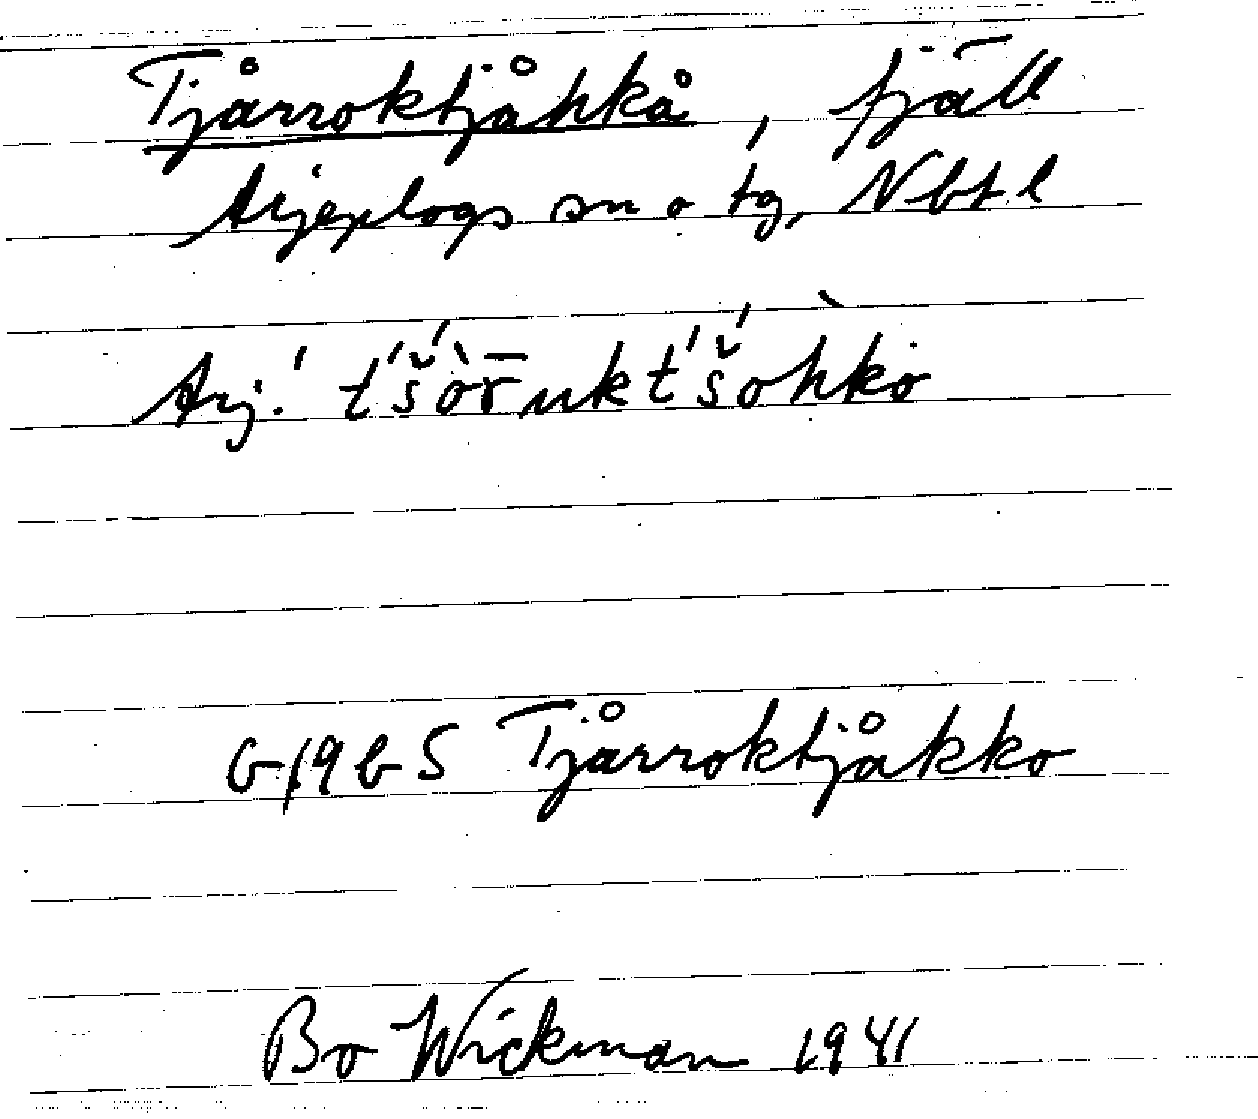 Tjårroktjåhkå, fjäll
Arjeplogs sn o tg, Nbt l
Arj. t́š́òr̄ukt́š́ohkò
Tjårroktjåkko
Bo Wickman 1941